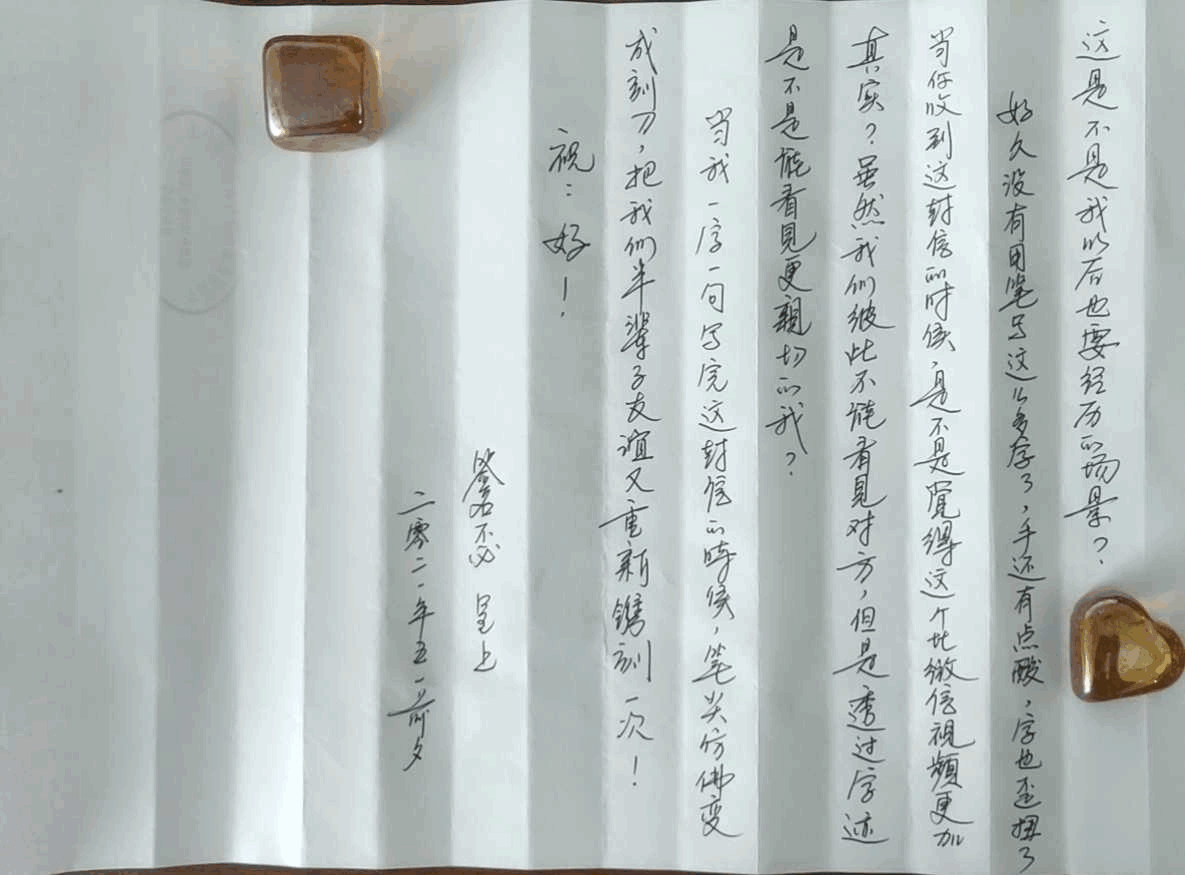 这是不是我以后也要经历的场景？
好久没有用笔写这么多字了，手还有点酸，字也歪扭了
当你收到这封信的时候，是不是覺得这个比微信视频更加
真实？虽然我们彼此不能看見对方，但是透过字迹
是不是能看見更親切的我？
当我一字一句写完这封信的時候，笔尖仿佛变
成刻刀，把我们半辈子友谊又重新镌刻一次！
祝：好！
签名不必 呈上
二零二一年五一前夕